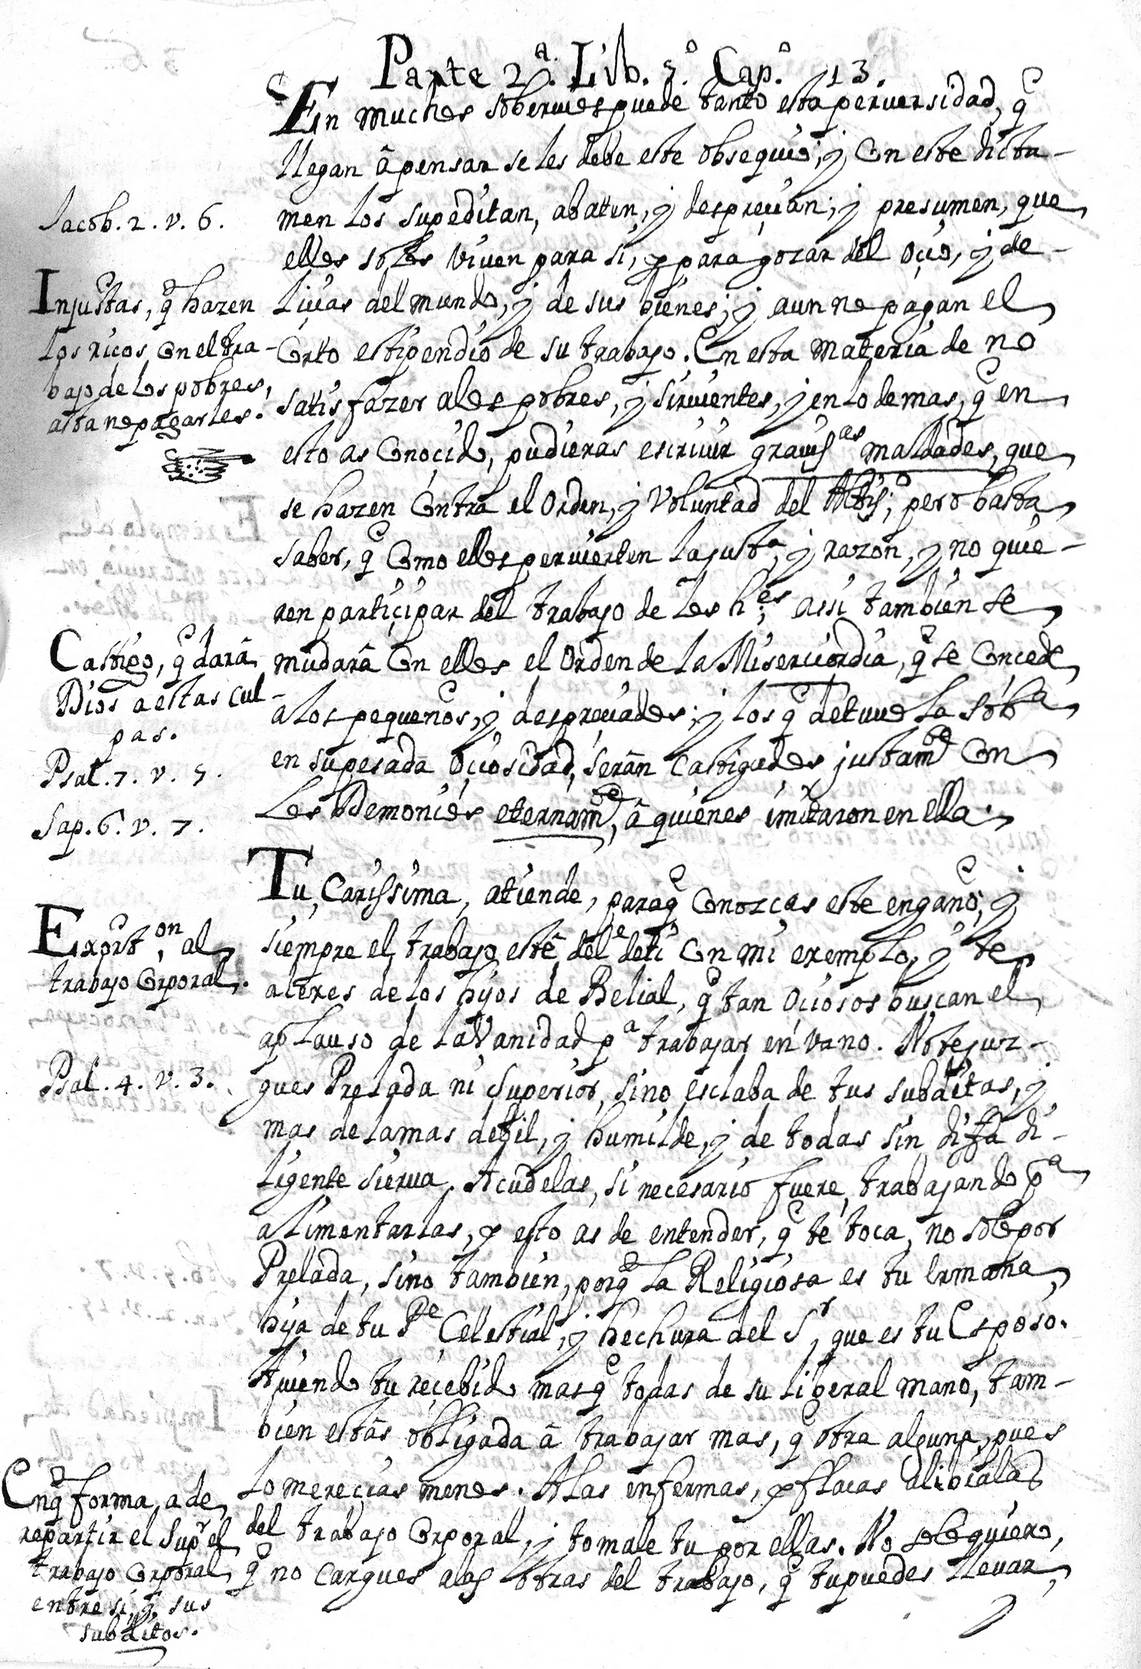 Parte 2ª. Lib. 5º. Cap.º 13.
En muchos soberuios puede tanto esta peruersidad, q̃
llegan â pensar se les debe este obsequio; y con este dicta-
men los supeditan, abaten, y despreçian; y presumen, que
ellos solos viven para si, y para gozar del oçio, y de-
liçias del mundo, y de sus bienes; y aun no pagan el
corto estipendio de su trabajo. En esta materia de no
satisfazer a los pobres, y siruientes, y en lo demas, q̃ en
esto as conoçido, pudieras escriuir grauiss.as maldades, que
se hazen contra el orden, y voluntad del Altis.º; pero basta
saber, q̃ como ellos peruierten la just.ª, y razon, y no quie-
ren partiçipar del trabajo de los h.es; assi tambien se
mudarâ con ellos el orden de la Misericordia, q̃ se conçede
a los pequeños, y despreçiados; y los q̃ detuuo la sob.ª
en su pesada oçiosidad, serân castigados justam.te con
los Demonios eternam.te, â quienes imitaron en ella.
Tu, Carissima, atiende, paraq̃ conozcas este engaño; y
siempre el trabajo estê del.e de ti con mi exemplo, y te
alexes de los hijos de Belial, q̃ tan oçiosos buscan el
aplauso de la vanidad p.ª trabajar en vano. No te juz-
gues Prelada ni superior, sino esclaba de tus subditas, y
mas de la mas debil, y humilde, y de todas sin dif.ª di-
ligente sierua. Acudelas, si necesario fuere, trabajando p.ª
alimentarlas, y esto as de entender, q̃ te toca, no solo por
Prelada, sino tambien, porq̃ la Religiosa es tu ermana,
hija de tu P.e Celestial, y hechura del S.r, que es tu Esposo.
Aviendo tu reçebido mas q̃ todas de su liberal mano, tam-
bien estâs obligada â trabajar mas, q̃ otra alguna, pues
lo mereçias menos. A las enfermas, y flacas alibialas
del trabajo corporal, y tomale tu por ellas. No solo quiero,
q̃ no cargues a las otras del trabajo, q̃ tu puedes lleuar,
Iacob. 2. v. 6.
Injustas, q̃ hazen
los ricos, con el tra-
bajo de los pobres,
asta no pagarles.
Castigo, q̃ darâ
Dios a estas cul-
pas.
Psal. 7. v. 5.
Sap. 6. v. 7.
Exort.on al
trabajo corporal.
Psal. 4. v. 3.
Enq̃ forma, a de
repartir el Sup.r el
trabajo corporal
entre si, y sus
subditos.